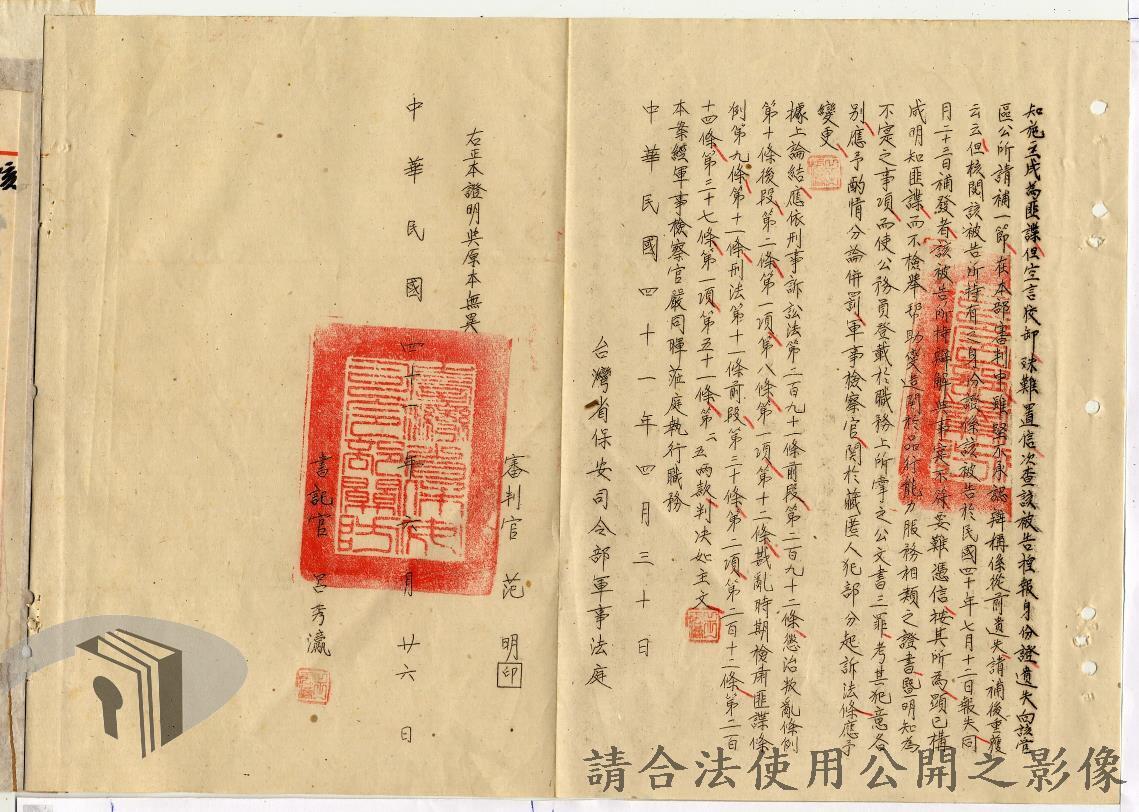 知施至成為匪諜但空言狡卸殊難置信次查該被告揑報身份證遺失向該管
區公所請補一節在本部審判中雖堅不承認辯稱係從前遺失請補後重獲
云云但核閱該被告所持有之身份證係該被告於民國四十年七月十二日報失同
月二十三日補發者該被告所持辯解與事實不符委難憑信按其所為顯已構
成明知匪諜而不檢舉幫助變造關於品行能力服務相類之證書暨明知為
不實之事項而使公務員登載於職務上所掌之公文書三罪考其犯意各
別應予酌情分論併罰軍事檢察官關於藏匿人犯部分起訴法條應予
變更
據上論結應依刑事訴訟法第二百九十一條前段第二百九十二條懲治叛亂條例
第十條後段第二條第一項第八條第一項第十二條戡亂時期檢肅匪諜條
例第九條第十一條刑法第十一條前段第三十條第二項第二百十二條第二百
十四條第三十七條第一項第五十一條第二五兩款判決如主文
本案經軍事檢察官嚴同暉蒞庭執行職務
中華民國四十一年四月三十日
台灣省保安司令部軍事法庭
審判官 范明 印
右正本證明與原本無異
書記官 呂秀瀛
中華民國四十一年六月廿六日
請合法使用公開之影像